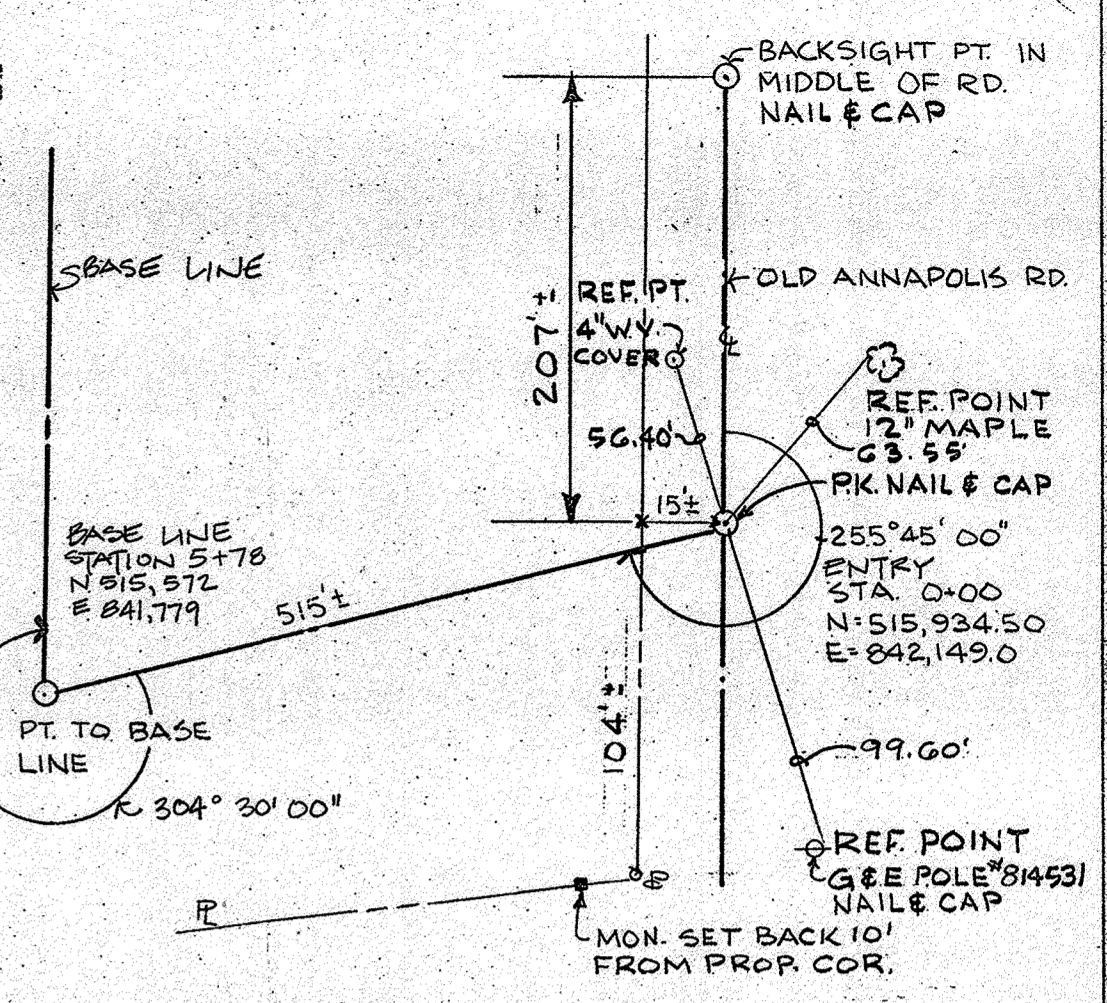 BACKSIGHT PT. IN
MIDDLE OF RD.
NAIL & CAP
BASE LINE
OLD ANNAPOLIS RD.
207'±
REF. PT.
4" W.V.
COVER
℄
REF. POINT
12" MAPLE
63.55'
56.40'
P.K. NAIL & CAP
15'±
255° 45' 00"
ENTRY
STA. 0+00
N=515,934.50
E=842,149.0
BASE LINE
STATION 5+78
N 515,572
E 841,779
515'±
104'±
PT. TO BASE
LINE
99.60'
304° 30' 00"
REF. POINT
G&E POLE #814531
NAIL & CAP
PL
MON. SET BACK 10'
FROM PROP. COR.